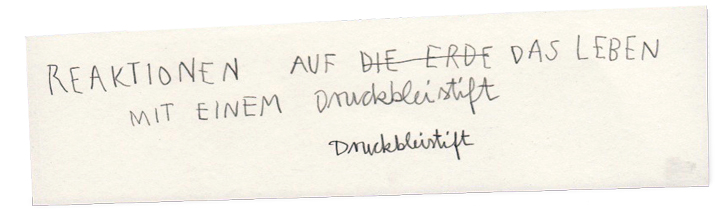 REAKTIONEN AUF DIE ERDE DAS LEBEN
MIT EINEM Druckbleistift
Druckbleistift